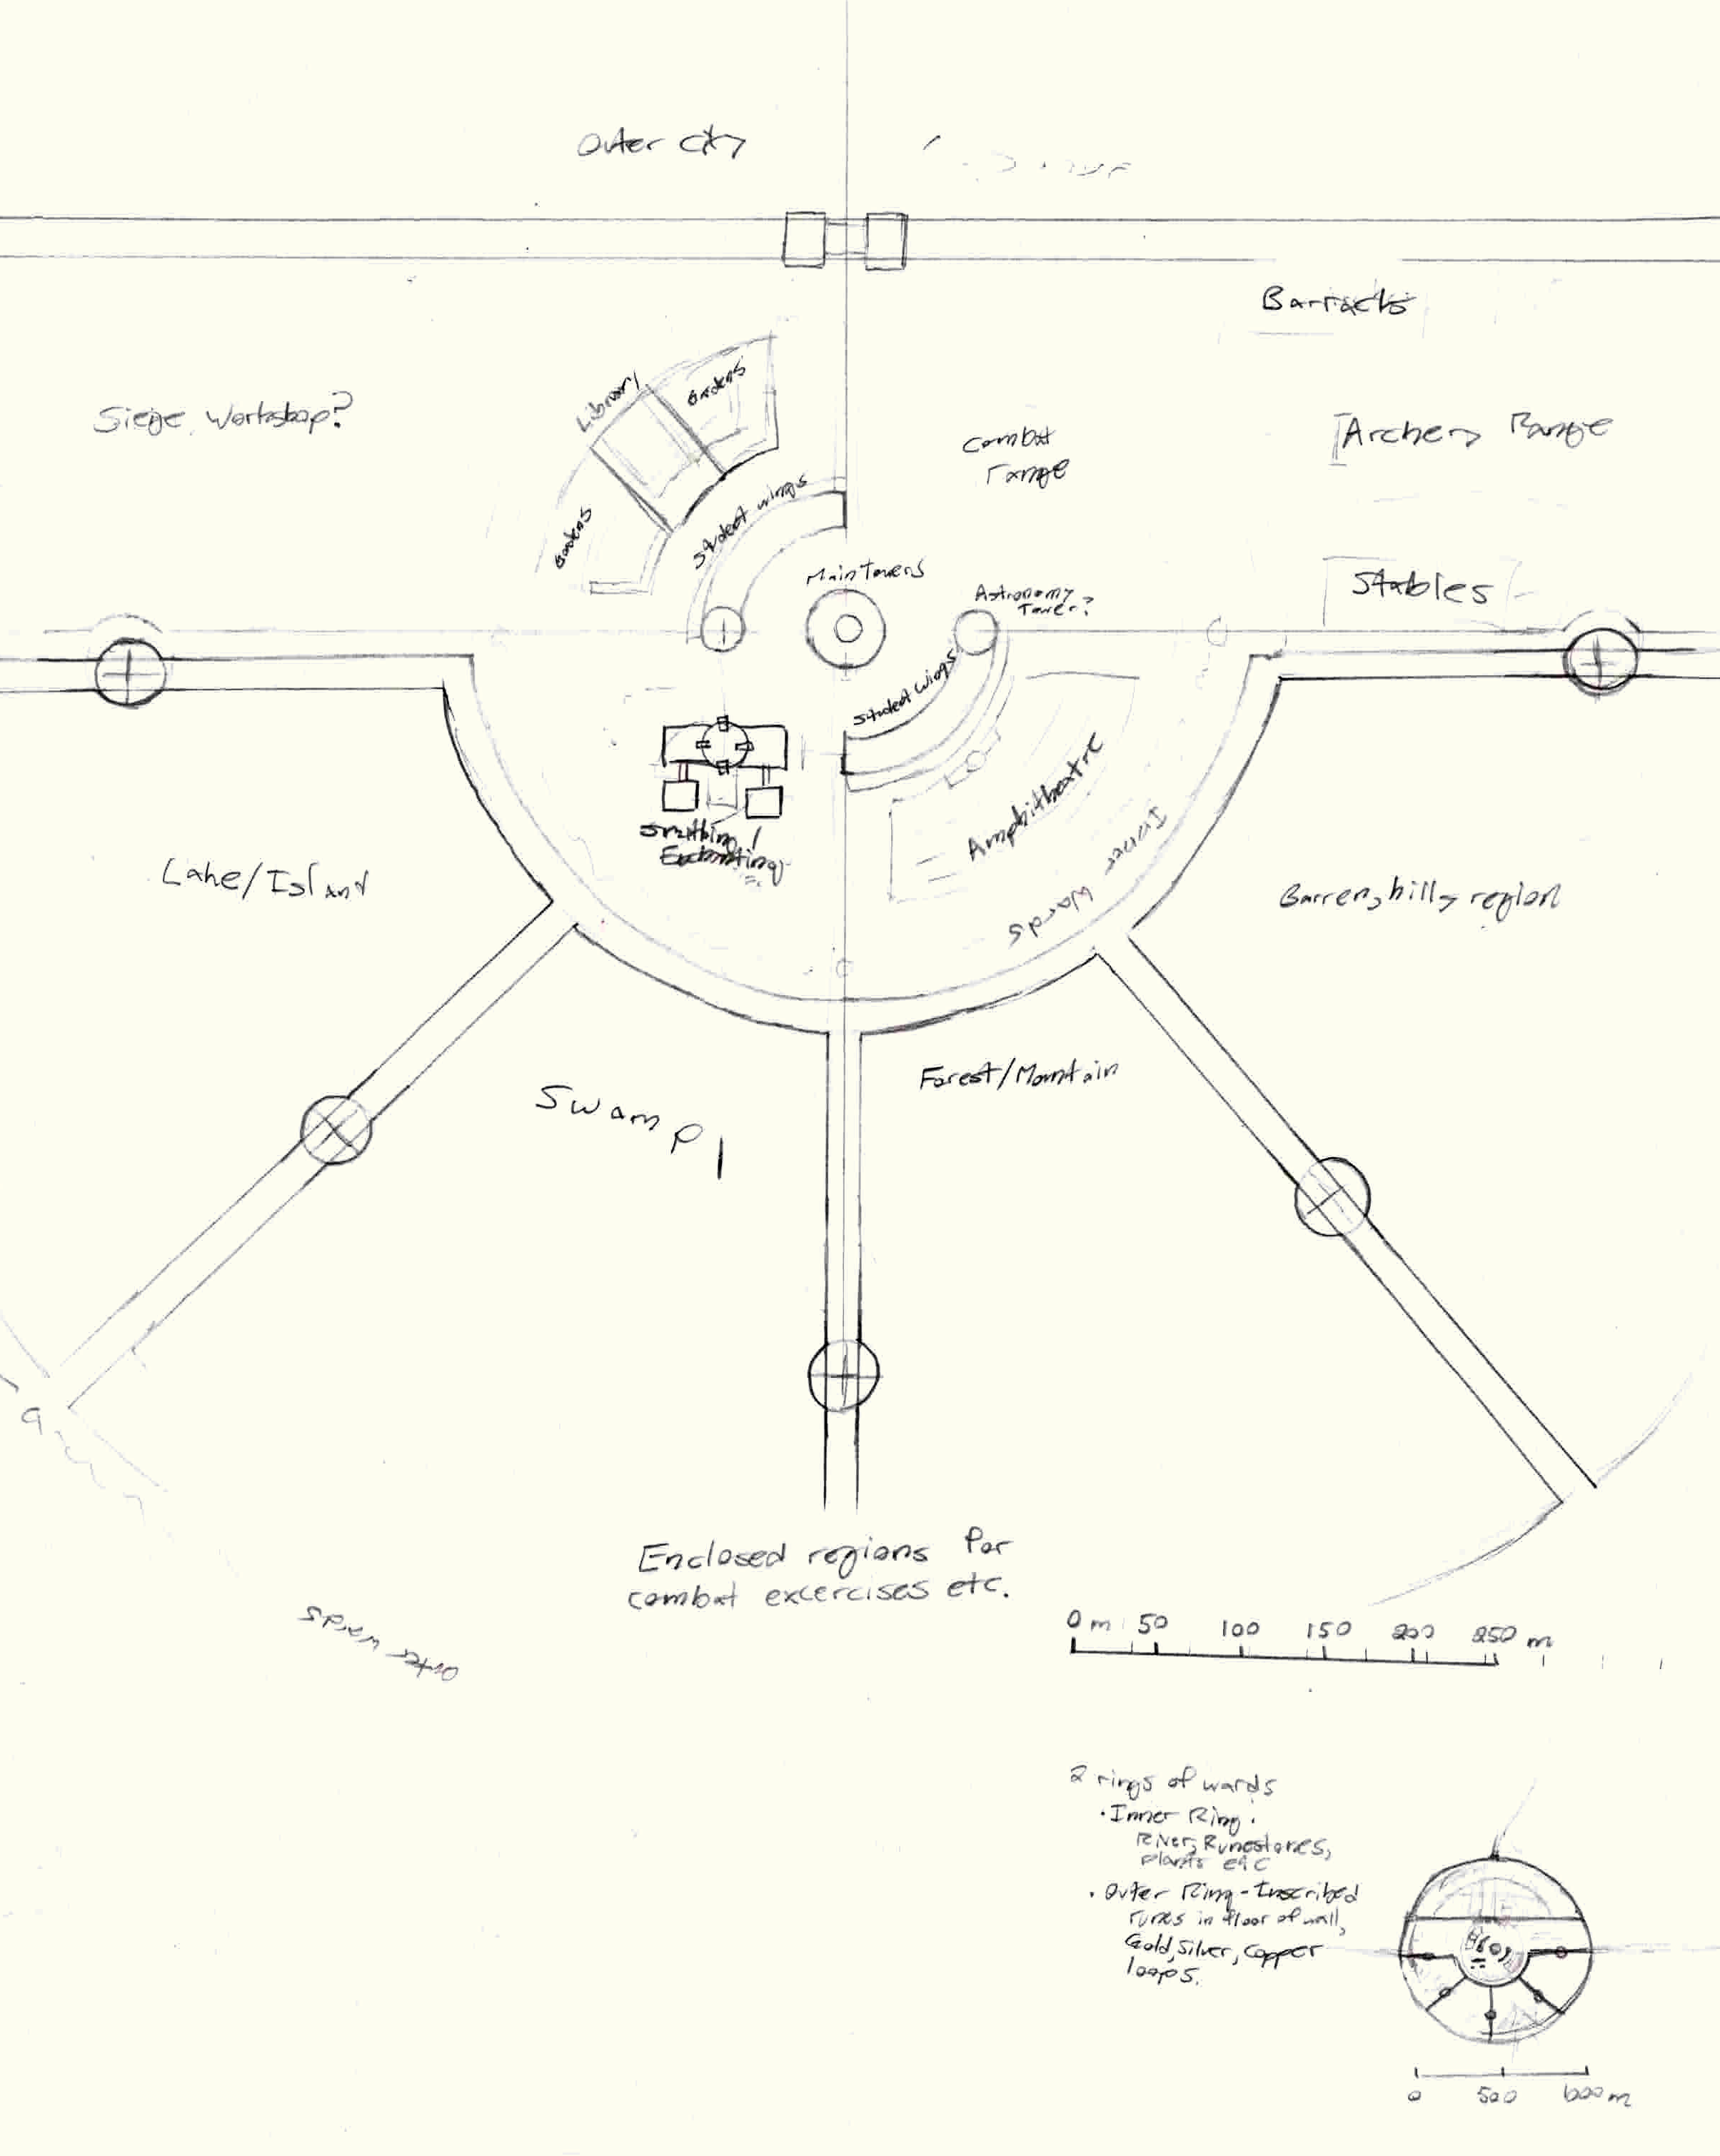 Outer city
Barracks
Siege Workshop?
Library
Gardens
Combat
range
Archery Range
Gardens
Student wings
Main Towers
Astronomy
Tower?
Stables
Student wings
Smithing/
Enchanting
Amphitheatre
Inner
Wards
Lake/Island
Barren, hilly region
Swamp
Forest/Mountain
Enclosed regions for
combat excercises etc.
Outer wards
0 m 50 100 150 200 250 m
2 rings of wards
• Inner Ring:
River, Runestones,
plants etc
• Outer Ring - Inscribed
runes in floor of wall,
Gold, Silver, Copper
loops.
0 500 600 m